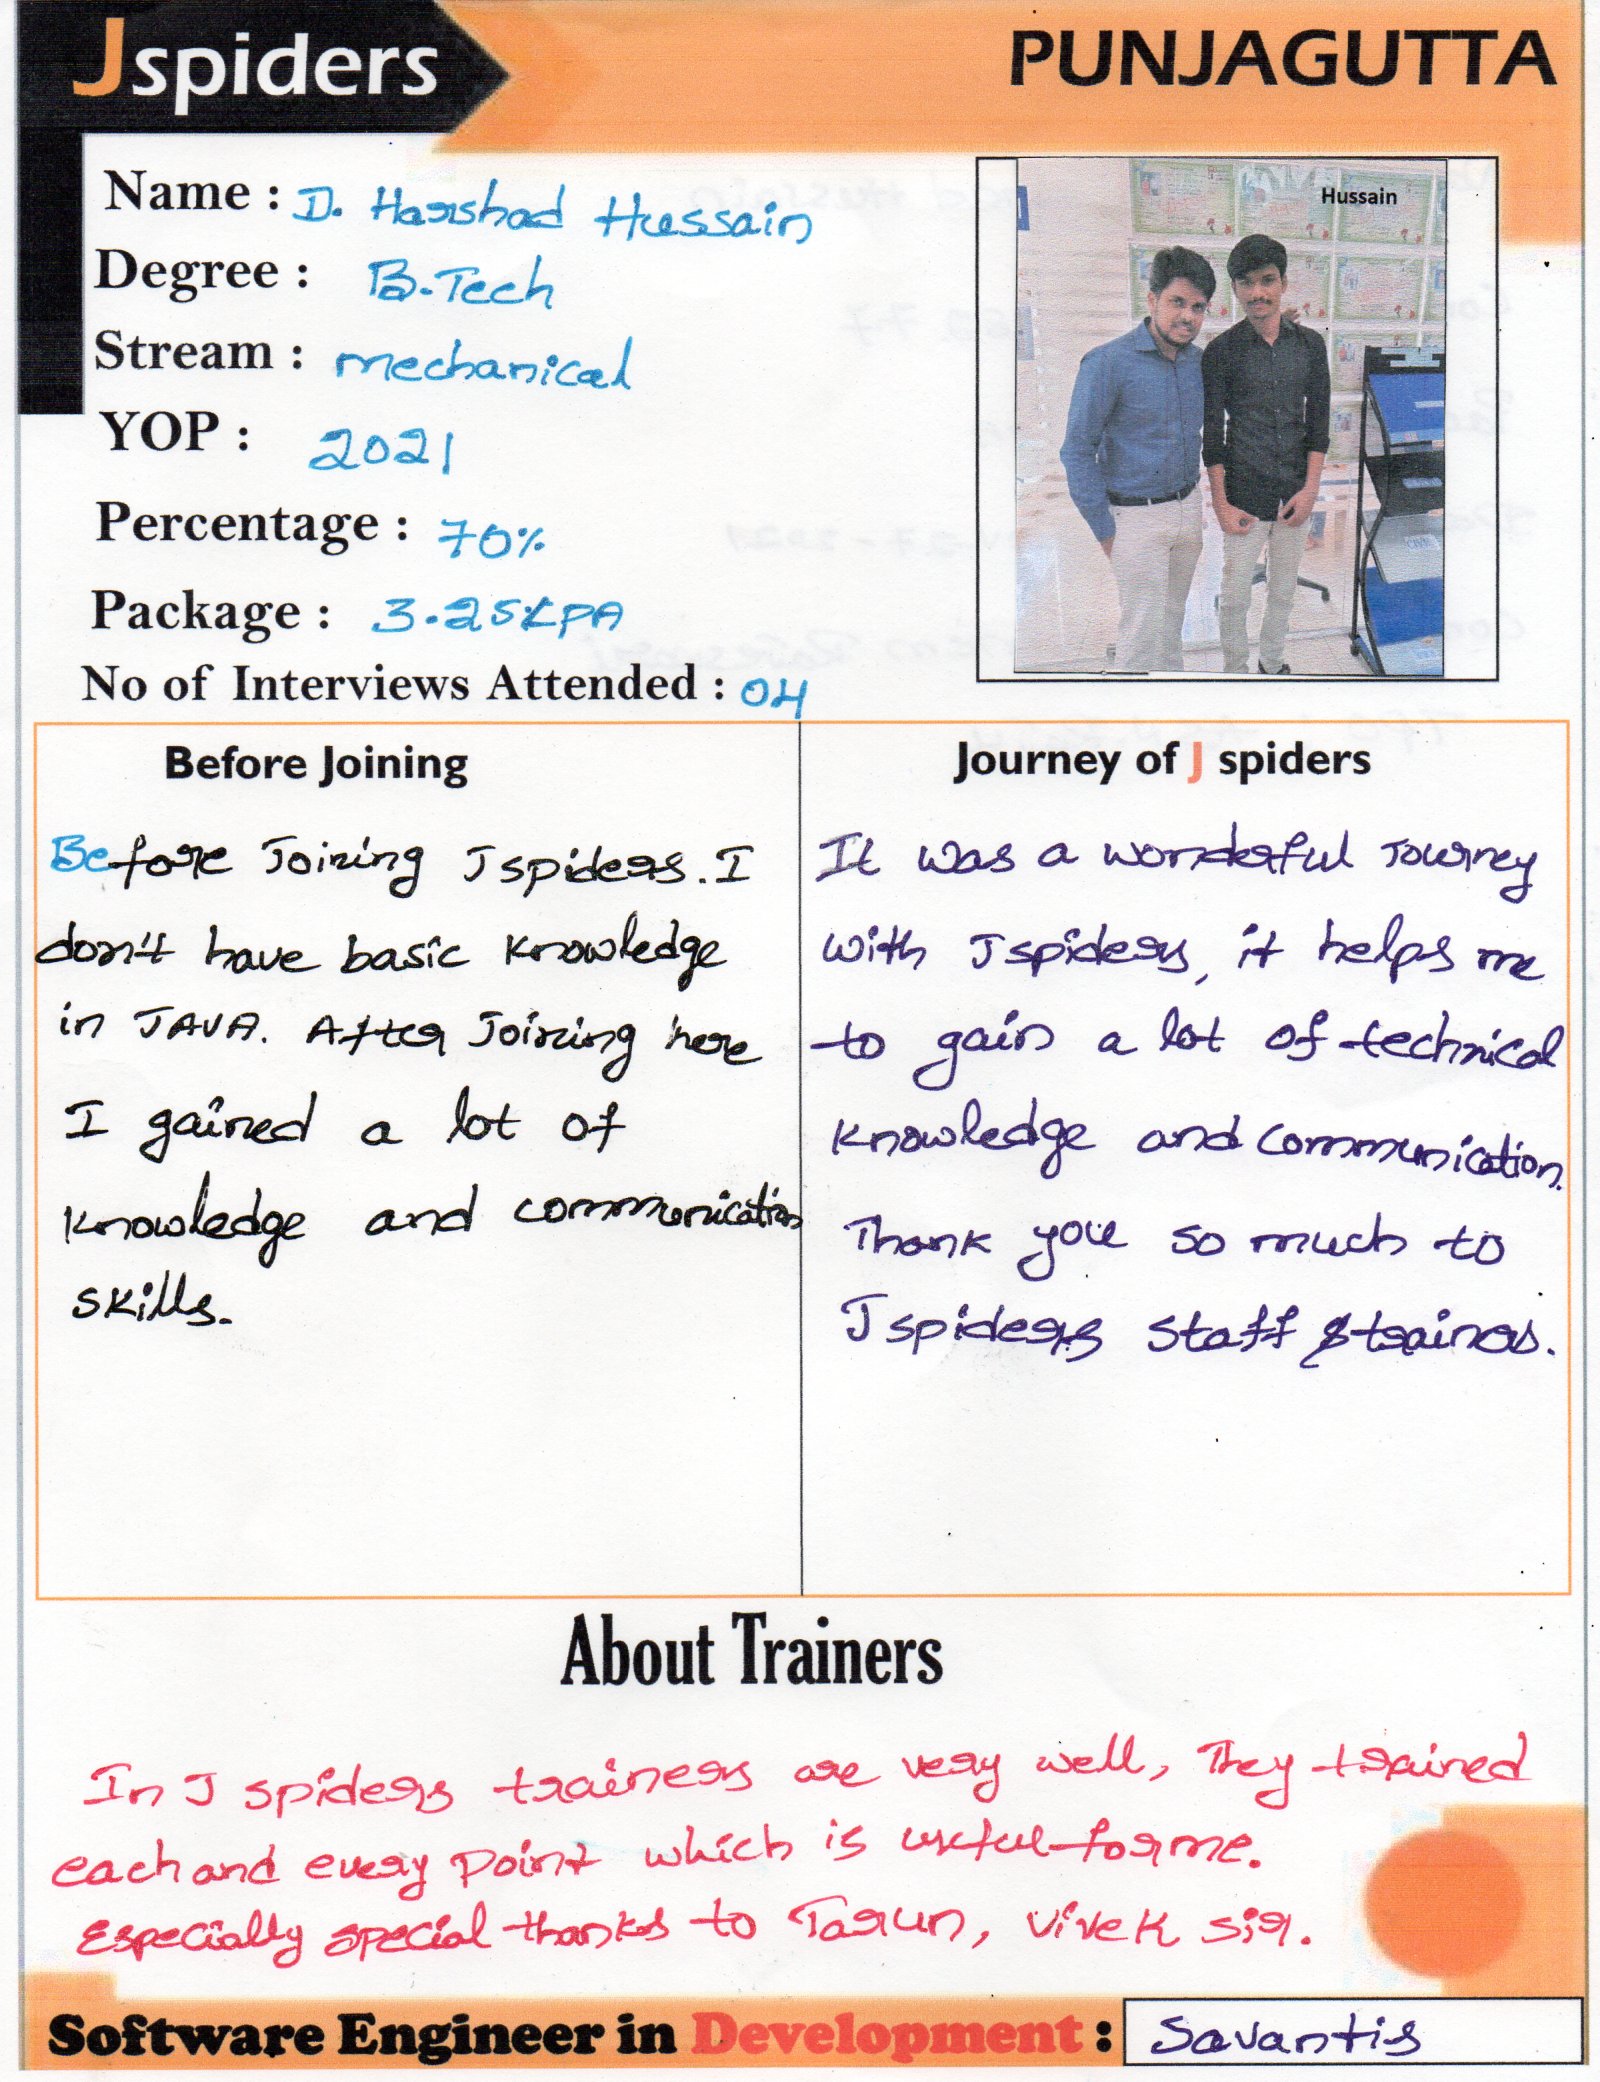 Jspiders
PUNJAGUTTA
Name : D. Harshad Hussain
Degree : B.Tech
Stream : mechanical
YOP : 2021
Percentage : 70%
Package : 3.25LPA
No of Interviews Attended : 04
Hussain
Before Joining
Before Joining Jspiders. I
don't have basic knowledge
in JAVA. After Joining here
I gained a lot of
knowledge and communication
skills.
Journey of J spiders
It was a wonderful Journey
with Jspiders, it helps me
to gain a lot of technical
knowledge and communication.
Thank you so much to
Jspiders staff & trainers.
About Trainers
In J spiders trainers are very well, They trained
each and every point which is useful for me.
Especially special thanks to Tarun, Vivek sir.
Software Engineer in Development : Savantis